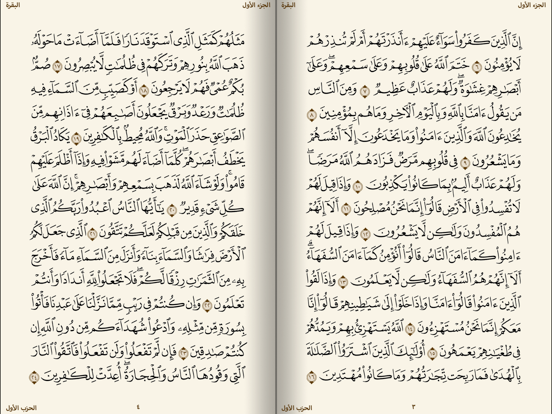 الجزء الأول
البقرة
إِنَّ الَّذِينَ كَفَرُوا سَوَاءٌ عَلَيْهِمْ ءَأَنذَرْتَهُمْ أَمْ لَمْ تُنذِرْهُمْ
لَا يُؤْمِنُونَ ٦ خَتَمَ اللَّهُ عَلَىٰ قُلُوبِهِمْ وَعَلَىٰ سَمْعِهِمْ ۖ وَعَلَىٰ
أَبْصَارِهِمْ غِشَاوَةٌ ۖ وَلَهُمْ عَذَابٌ عَظِيمٌ ٧ وَمِنَ النَّاسِ
مَن يَقُولُ ءَامَنَّا بِاللَّهِ وَبِالْيَوْمِ الْآخِرِ وَمَا هُم بِمُؤْمِنِينَ ٨
يُخَادِعُونَ اللَّهَ وَالَّذِينَ ءَامَنُوا وَمَا يَخْدَعُونَ إِلَّا أَنفُسَهُمْ
وَمَا يَشْعُرُونَ ٩ فِي قُلُوبِهِم مَّرَضٌ فَزَادَهُمُ اللَّهُ مَرَضًا ۖ
وَلَهُمْ عَذَابٌ أَلِيمٌ بِمَا كَانُوا يَكْذِبُونَ ١٠ وَإِذَا قِيلَ لَهُمْ
لَا تُفْسِدُوا فِي الْأَرْضِ قَالُوا إِنَّمَا نَحْنُ مُصْلِحُونَ ١١ أَلَا إِنَّهُمْ
هُمُ الْمُفْسِدُونَ وَلَٰكِن لَّا يَشْعُرُونَ ١٢ وَإِذَا قِيلَ لَهُمْ
ءَامِنُوا كَمَا ءَامَنَ النَّاسُ قَالُوا أَنُؤْمِنُ كَمَا ءَامَنَ السُّفَهَاءُ ۗ
أَلَا إِنَّهُمْ هُمُ السُّفَهَاءُ وَلَٰكِن لَّا يَعْلَمُونَ ١٣ وَإِذَا لَقُوا
الَّذِينَ ءَامَنُوا قَالُوا ءَامَنَّا وَإِذَا خَلَوْا إِلَىٰ شَيَاطِينِهِمْ قَالُوا إِنَّا
مَعَكُمْ إِنَّمَا نَحْنُ مُسْتَهْزِءُونَ ١٤ اللَّهُ يَسْتَهْزِئُ بِهِمْ وَيَمُدُّهُمْ
فِي طُغْيَانِهِمْ يَعْمَهُونَ ١٥ أُولَٰئِكَ الَّذِينَ اشْتَرَوُا الضَّلَالَةَ
بِالْهُدَىٰ فَمَا رَبِحَت تِّجَارَتُهُمْ وَمَا كَانُوا مُهْتَدِينَ ١٦
٣
الحزب الأول
الجزء الأول
البقرة
مَثَلُهُمْ كَمَثَلِ الَّذِي اسْتَوْقَدَ نَارًا فَلَمَّا أَضَاءَتْ مَا حَوْلَهُ
ذَهَبَ اللَّهُ بِنُورِهِمْ وَتَرَكَهُمْ فِي ظُلُمَاتٍ لَّا يُبْصِرُونَ ١٧ صُمٌّ
بُكْمٌ عُمْيٌ فَهُمْ لَا يَرْجِعُونَ ١٨ أَوْ كَصَيِّبٍ مِّنَ السَّمَاءِ فِيهِ
ظُلُمَاتٌ وَرَعْدٌ وَبَرْقٌ يَجْعَلُونَ أَصَابِعَهُمْ فِي ءَاذَانِهِم مِّنَ
الصَّوَاعِقِ حَذَرَ الْمَوْتِ ۚ وَاللَّهُ مُحِيطٌ بِالْكَافِرِينَ ١٩ يَكَادُ الْبَرْقُ
يَخْطَفُ أَبْصَارَهُمْ ۖ كُلَّمَا أَضَاءَ لَهُم مَّشَوْا فِيهِ وَإِذَا أَظْلَمَ عَلَيْهِمْ
قَامُوا ۚ وَلَوْ شَاءَ اللَّهُ لَذَهَبَ بِسَمْعِهِمْ وَأَبْصَارِهِمْ ۚ إِنَّ اللَّهَ عَلَىٰ
كُلِّ شَيْءٍ قَدِيرٌ ٢٠ يَا أَيُّهَا النَّاسُ اعْبُدُوا رَبَّكُمُ الَّذِي
خَلَقَكُمْ وَالَّذِينَ مِن قَبْلِكُمْ لَعَلَّكُمْ تَتَّقُونَ ٢١ الَّذِي جَعَلَ لَكُمُ
الْأَرْضَ فِرَاشًا وَالسَّمَاءَ بِنَاءً وَأَنزَلَ مِنَ السَّمَاءِ مَاءً فَأَخْرَجَ
بِهِ مِنَ الثَّمَرَاتِ رِزْقًا لَّكُمْ ۖ فَلَا تَجْعَلُوا لِلَّهِ أَندَادًا وَأَنتُمْ
تَعْلَمُونَ ٢٢ وَإِن كُنتُمْ فِي رَيْبٍ مِّمَّا نَزَّلْنَا عَلَىٰ عَبْدِنَا فَأْتُوا
بِسُورَةٍ مِّن مِّثْلِهِ وَادْعُوا شُهَدَاءَكُم مِّن دُونِ اللَّهِ إِن
كُنتُمْ صَادِقِينَ ٢٣ فَإِن لَّمْ تَفْعَلُوا وَلَن تَفْعَلُوا فَاتَّقُوا النَّارَ
الَّتِي وَقُودُهَا النَّاسُ وَالْحِجَارَةُ ۖ أُعِدَّتْ لِلْكَافِرِينَ ٢٤
٤
الحزب الأول